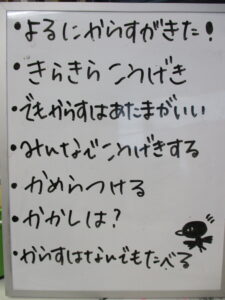 ・よるにからすがきた!
・きらきら ころげき
・でもからすはあたまがいい
・みんなでころげきする
・かめらつける
・かかしは?
・からすはなんでもたべる